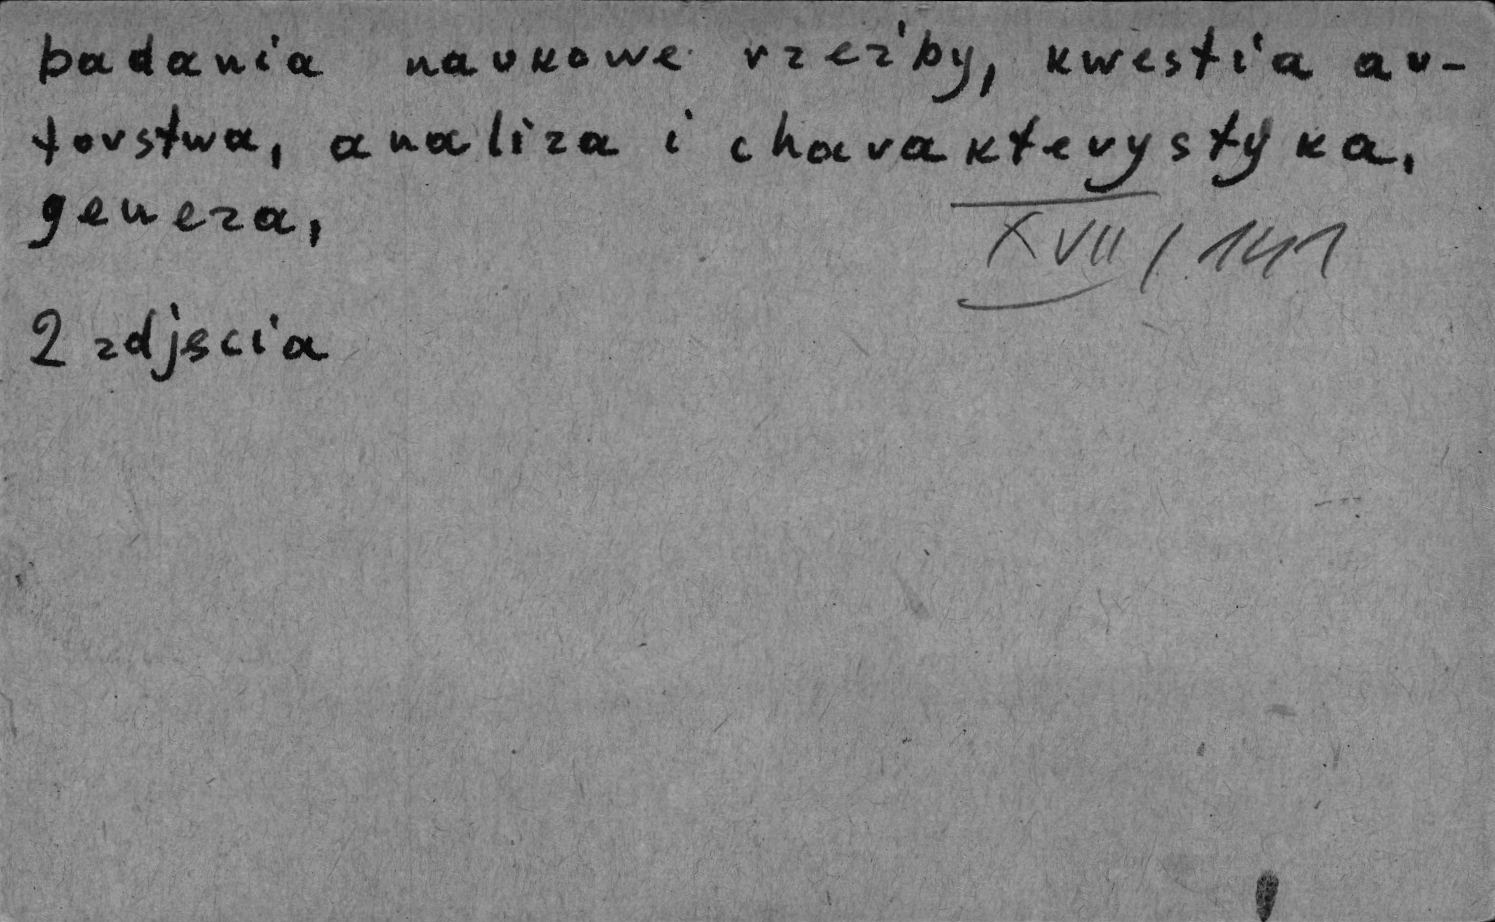 badania naukowe rzeźby, kwestia au-
torstwa, analiza i charakterystyka,
geneza,
XVII / 141
2 zdjęcia